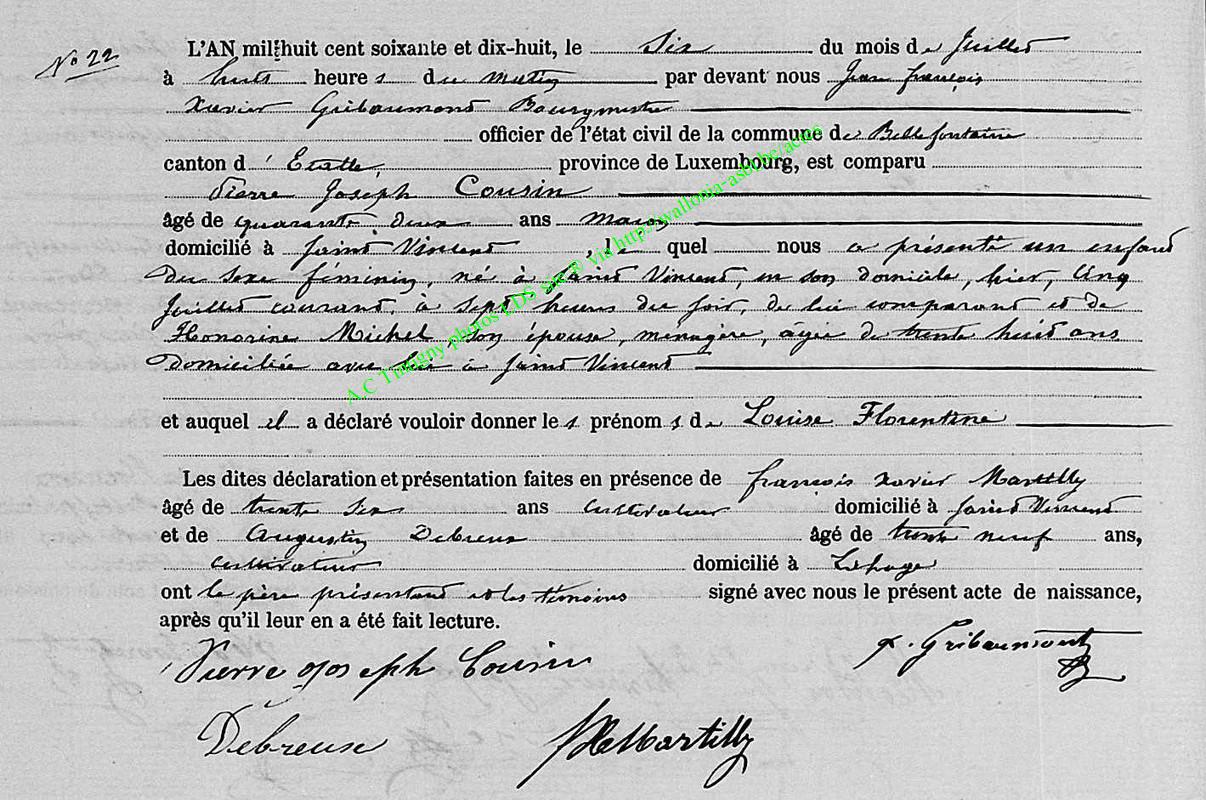 N° 22
L'AN mil huit cent soixante et dix-huit, le six du mois de Juillet
à huit heures du matin par devant nous Jean françois
Xavier Gribaumont Bourgmestre
officier de l'état civil de la commune de Bellefontaine
canton d'Etalle, province de Luxembourg, est comparu
Pierre Joseph Cousin
âgé de quarante deux ans maçon
domicilié à Saint Vincent, lequel nous a présenté un enfant
du sexe féminin, né à Saint Vincent, en son domicile, hier, cinq
Juillet courant, à sept heures du soir, de lui comparant et de
Honorine Michel son épouse, menagère, agée de trente huit ans
domiciliée avec lui à Saint Vincent
et auquel il a déclaré vouloir donner les prénoms de Louise Florentine
Les dites déclaration et présentation faites en présence de françois Xavier Martilly
âgé de trente six ans cultivateur domicilié à Saint Vincent
et de Augustin Debreux âgé de trente neuf ans,
cultivateur domicilié à Lahage
ont le père présentant et les témoins signé avec nous le présent acte de naissance,
après qu'il leur en a été fait lecture.
Pierre Joseph Cousin
x. Gribaumont
Debreuse
Martilly
A.C Tintigny photos EDS site via http://wallonia-asbl.be/actes